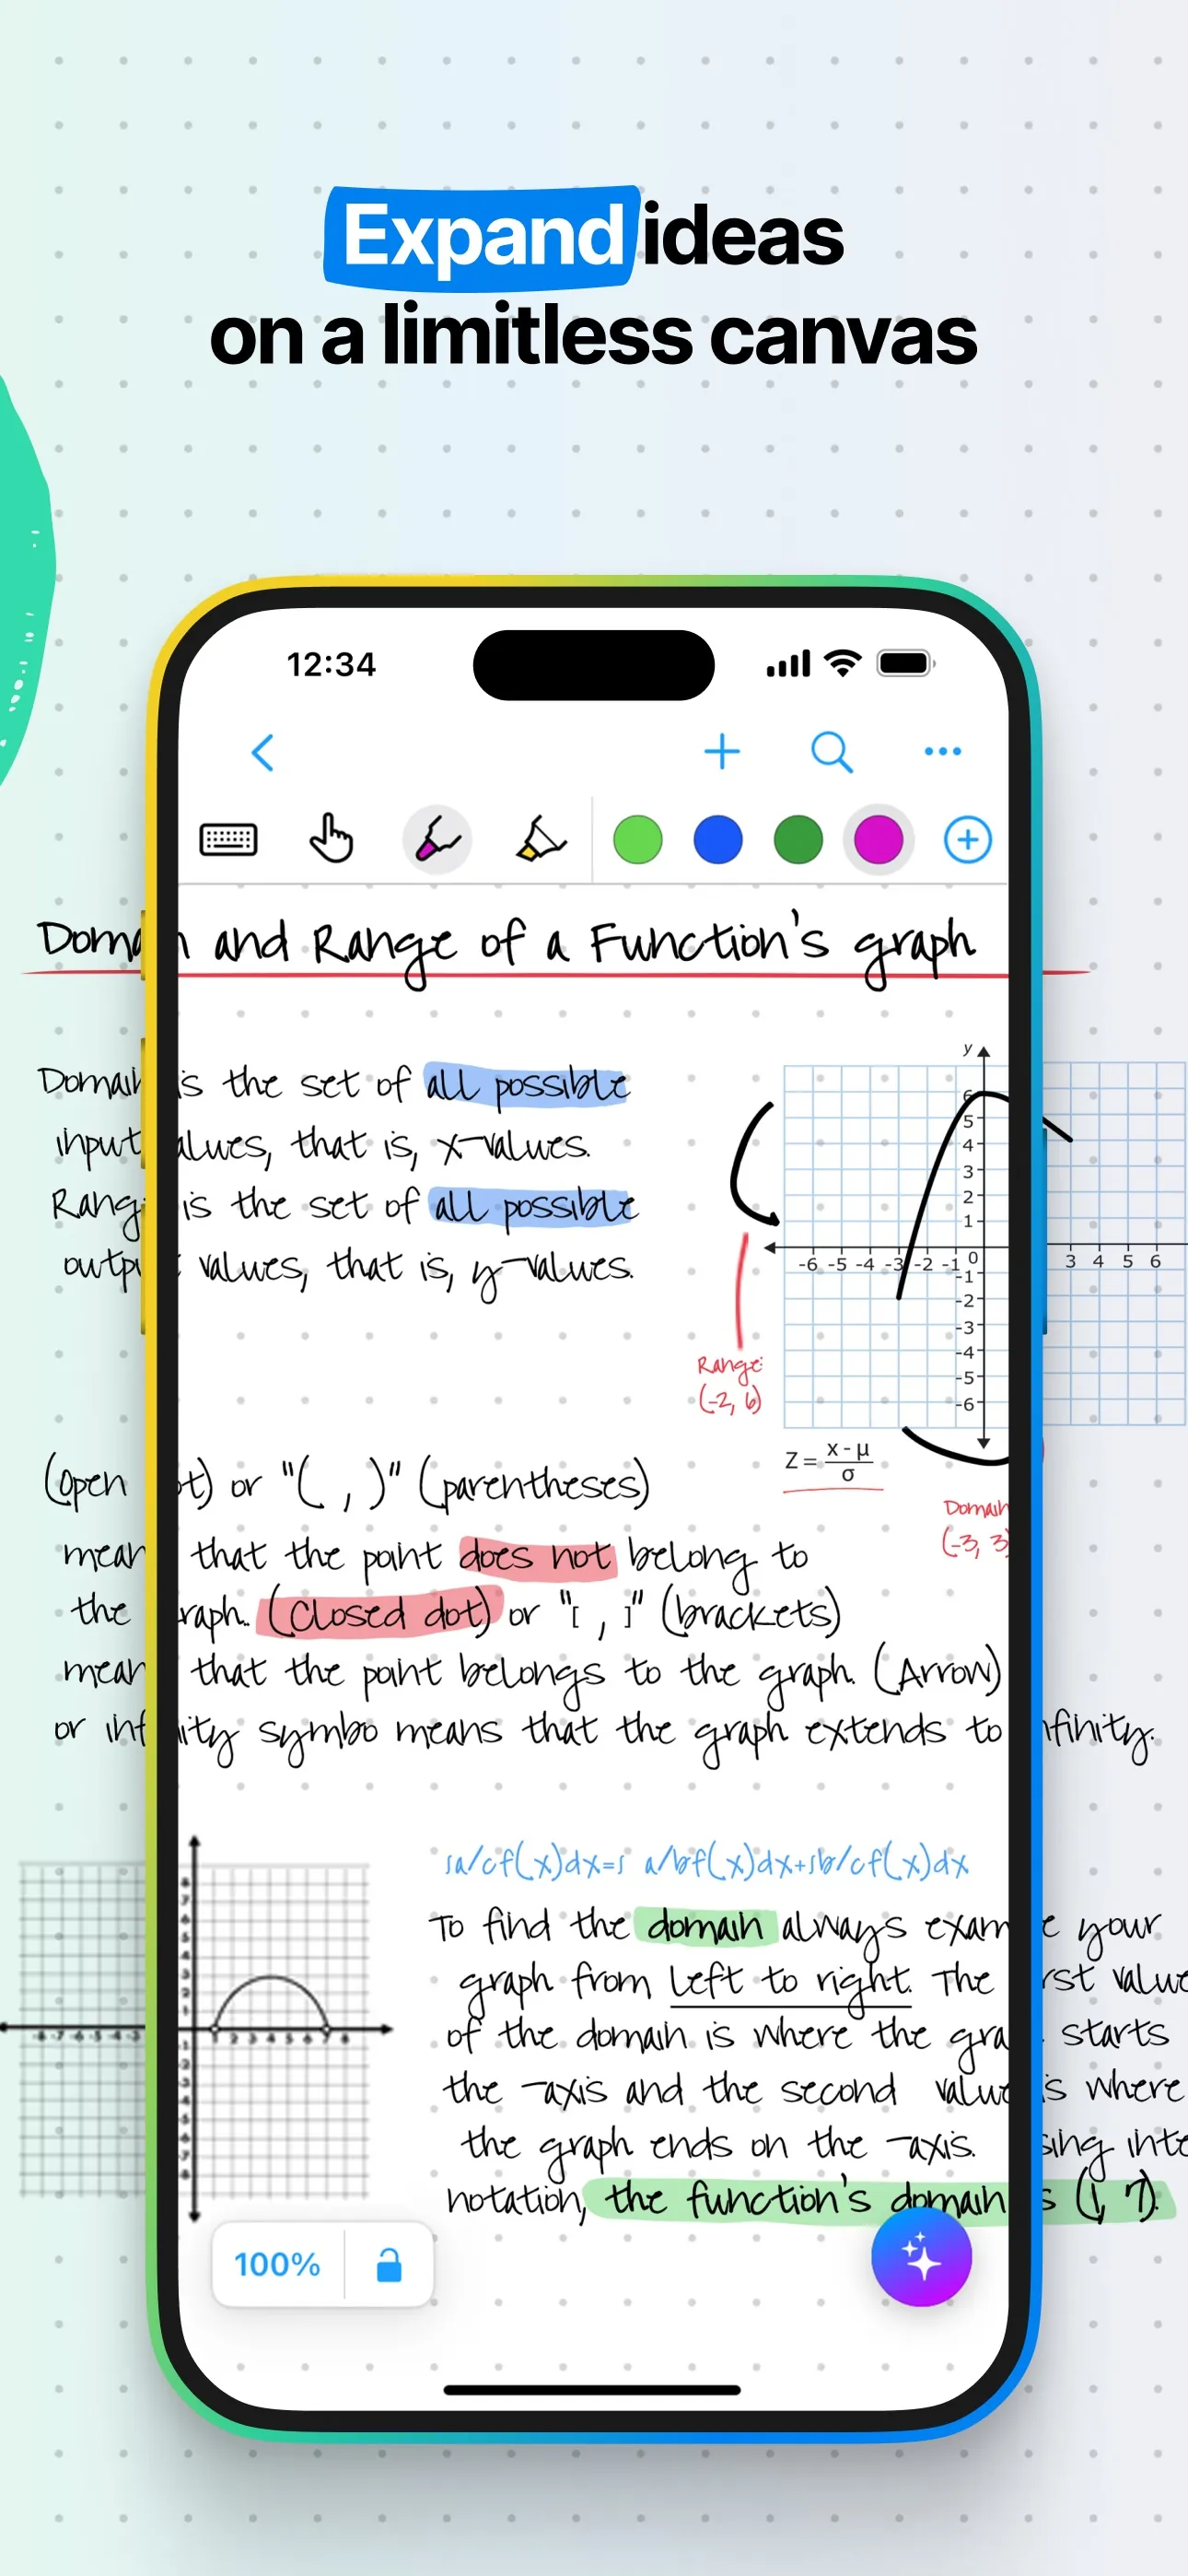 Expand ideas
on a limitless canvas
12:34
Domain and Range of a Function's graph
Domain is the set of all possible
input values, that is, x-values.
Range is the set of all possible
output values, that is, y-values.
y
6
5
4
3
2
1
-6 -5 -4 -3 -2 -1 0 3 4 5 6
-1
-2
-3
-4
-5
-6
Range:
(-2, 6)
Z = x - μ / σ
Domain
(-3, 3)
(Open dot) or "( , )" (parentheses)
mean that the point does not belong to
the graph. (Closed dot) or "[ , ]" (brackets)
mean that the point belongs to the graph. (Arrow)
or infinity symbo means that the graph extends to infinity.
2 3 4 5 6 7 8
∫a/cf(x)dx=∫ a/bf(x)dx+∫b/cf(x)dx
To find the domain always examine your
graph from left to right. The first value
of the domain is where the graph starts
the -axis and the second value is where
the graph ends on the -axis. Using inte
notation, the function's domain is (1, 7).
100%